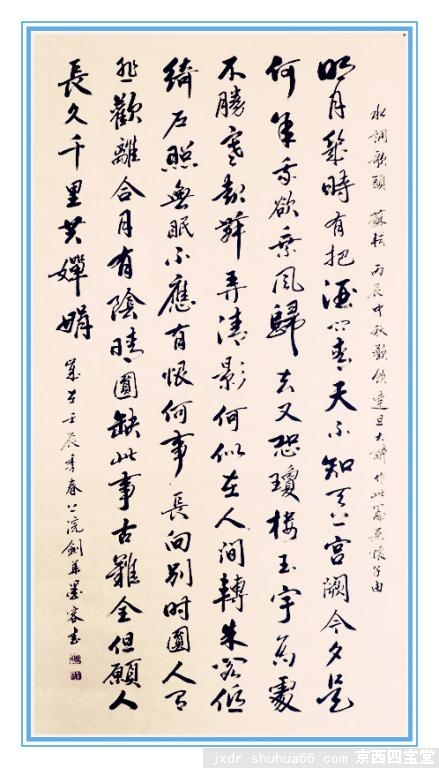 水調歌頭 蘇軾 丙辰中秋歡飲達旦大醉作此篇兼懷子由
明月幾時有把酒問青天不知天上宮闕今夕是
何年我欲乘風歸去又恐瓊樓玉宇高處
不勝寒起舞弄清影何似在人間轉朱閣低
綺戶照無眠不應有恨何事長向別時圓人有
悲歡離合月有陰晴圓缺此事古難全但願人
長久千里共嬋娟
歲在壬辰季春
京西四宝堂
jxdr.shuhua66.com